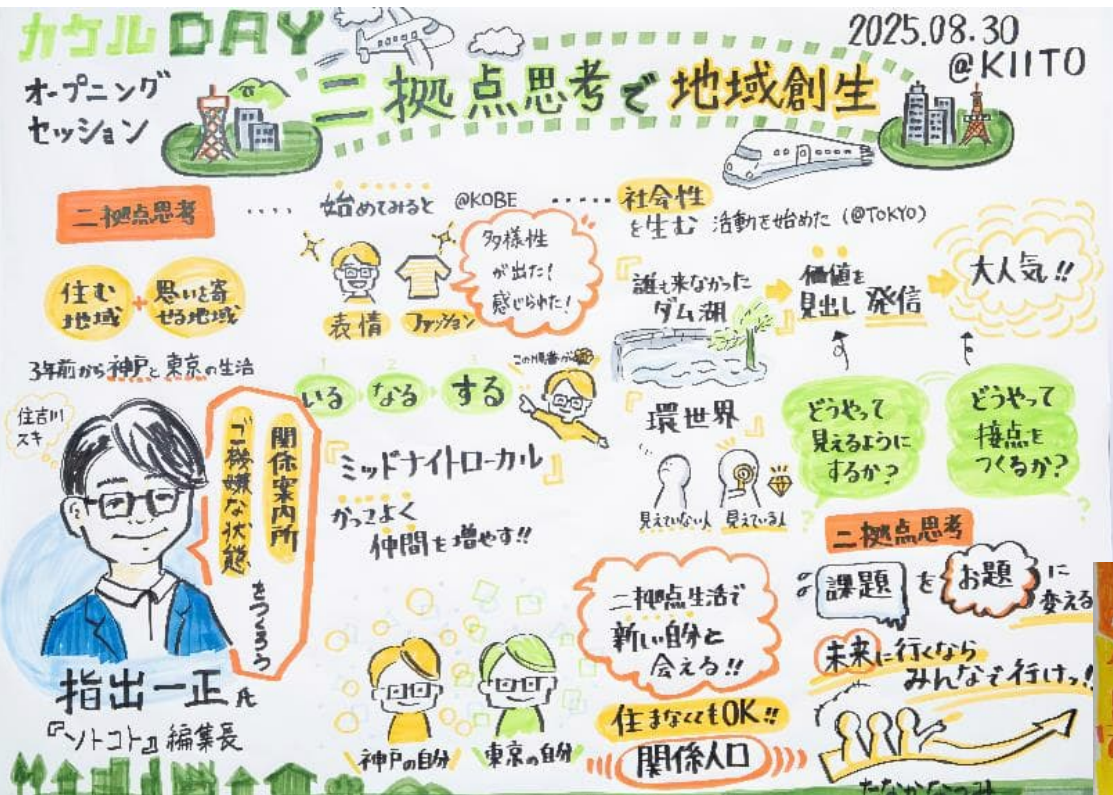 カケルDAY
オープニング
セッション
二拠点思考で地域創生
2025.08.30
@KIITO
二拠点思考
住む
地域
+
思いを寄
せる地域
3年前から神戸と東京の生活
住吉川
スキ
関係案内所
ご機嫌な状態、
をつくろう
指出一正氏
『ソトコト』編集長
・・・・ 始めてみると @KOBE ・・・・・
表情
ファッション
多様性
が出た!
感じられた!
1 2 3
いる なる する
この順番が
『ミッドナイトローカル』
かっこよく
仲間を増やす!!
神戸の自分
東京の自分
社会性
を生む 活動を始めた (@TOKYO)
『誰も来なかった
ダム湖』
価値を
見出し 発信
大人気!!
『環世界』
見えていない人 見えている人
どうやって
見えるように
するか?
どうやって
接点を
つくるか?
?
?
二拠点生活で
新しい自分と
会える!!
住まなくてもOK!!
関係人口
二拠点思考
課題 を お題 に
変える
未来に行くなら
みんなで行けっ!!
たなかなつみ